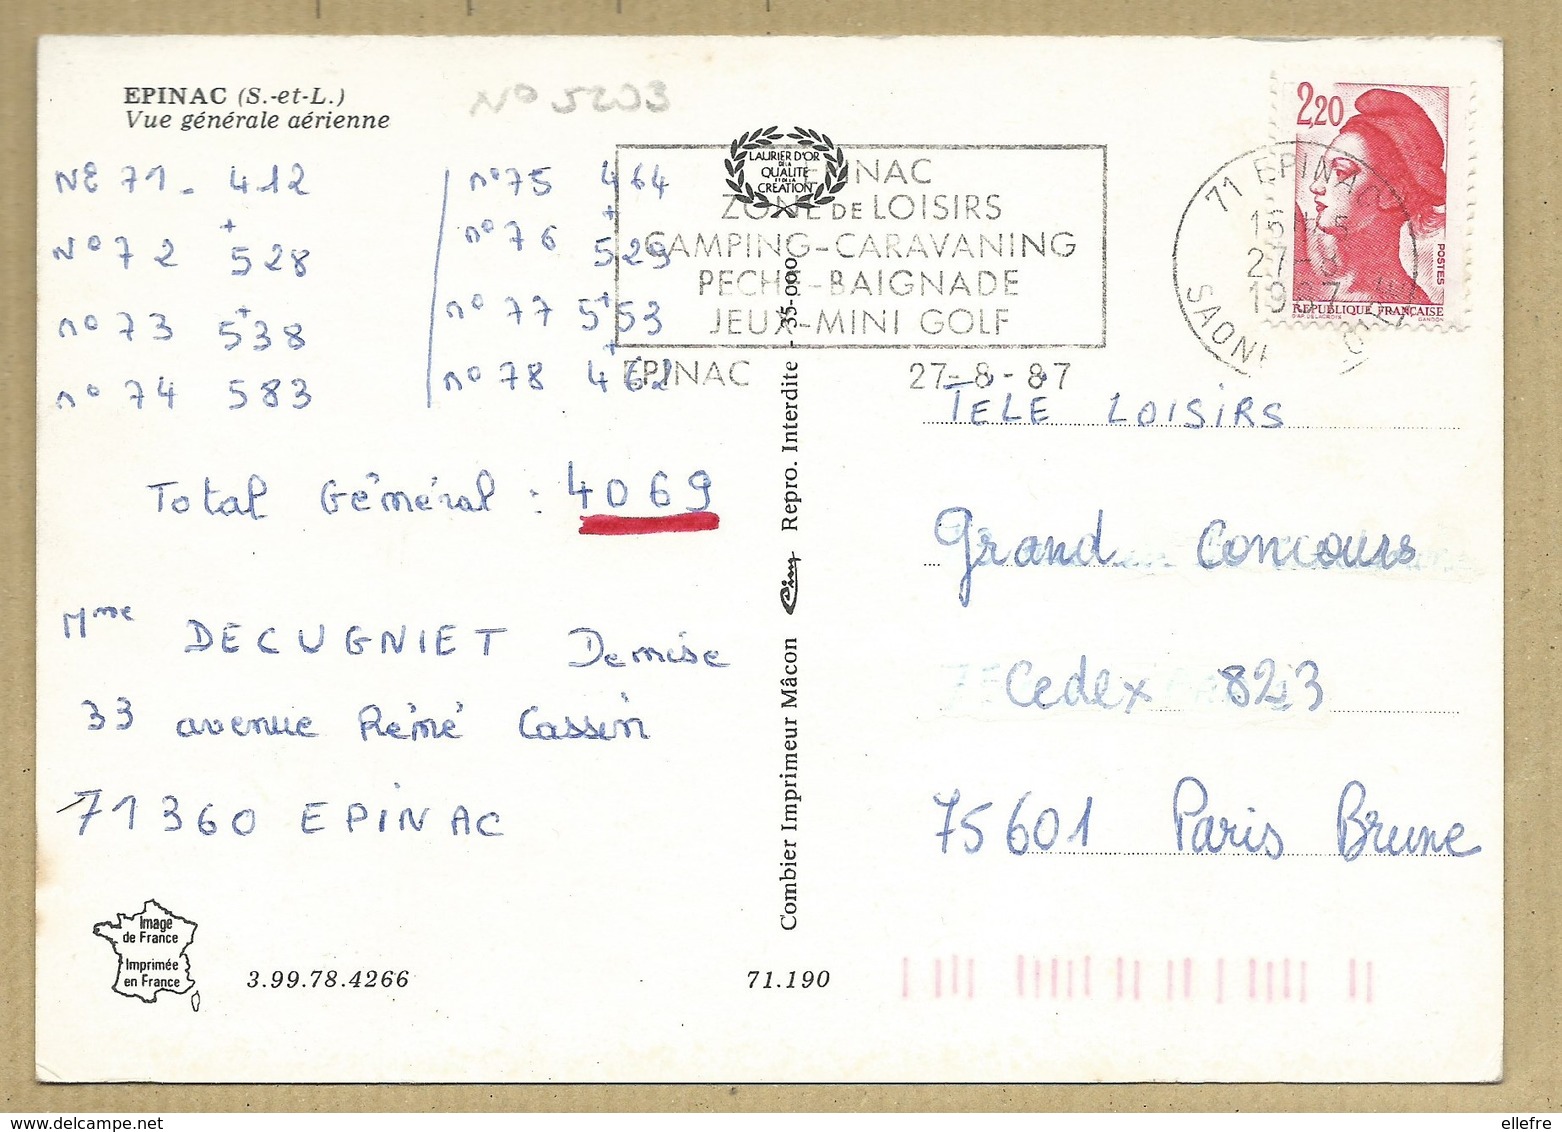 EPINAC (S.-et-L.)
Vue générale aérienne
N° 5203
NE 71 - 412
+
N° 72 528
+
n° 73 538
n° 74 583
n° 75 464
+
n° 76 529
+
n° 77 553
+
n° 78 462
Total Général : 4069
Mme DECUGNIET Denise
33 avenue Réné Cassin
71360 EPINAC
Image
de France
Imprimée
en France
3.99.78.4266
71.190
Combier Imprimeur Mâcon Cim Repro. Interdite - 35-000
LAURIER D'OR
DE LA
QUALITÉ
ET DE LA
CRÉATION
EPINAC
ZONE DE LOISIRS
CAMPING-CARAVANING
PECHE-BAIGNADE
JEUX-MINI GOLF
EPINAC 27-8-87
71 EPINAC
27-8
1987
SAONE
2,20
POSTES
REPUBLIQUE FRANÇAISE
D'AP. DELACROIX GANDON
TÉLÉ LOISIRS
Grand Concours
Cedex 823
75601 Paris Brune
ellefre